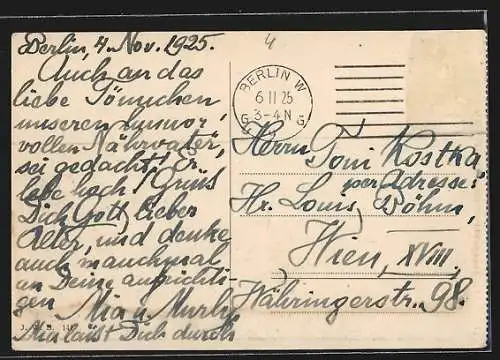 Berlin, 4. Nov. 1925.
Auch an das
liebe Tönnchen
unseren humor,
vollen Nährvater,
sei gedacht! Er
lebe hoch! Grüß
Dich Gott, lieber
Alter, und denke
auch manchmal
an Deine aufrichti-
gen Mia u. Murly
Mia läßt Dich durch
4
BERLIN W
6 11 25
3-4 N
G G
Herrn Toni Kostka
per Adresse:
Hr. Louis Böhm,
Wien, XVIII,
Währingerstr. 98.